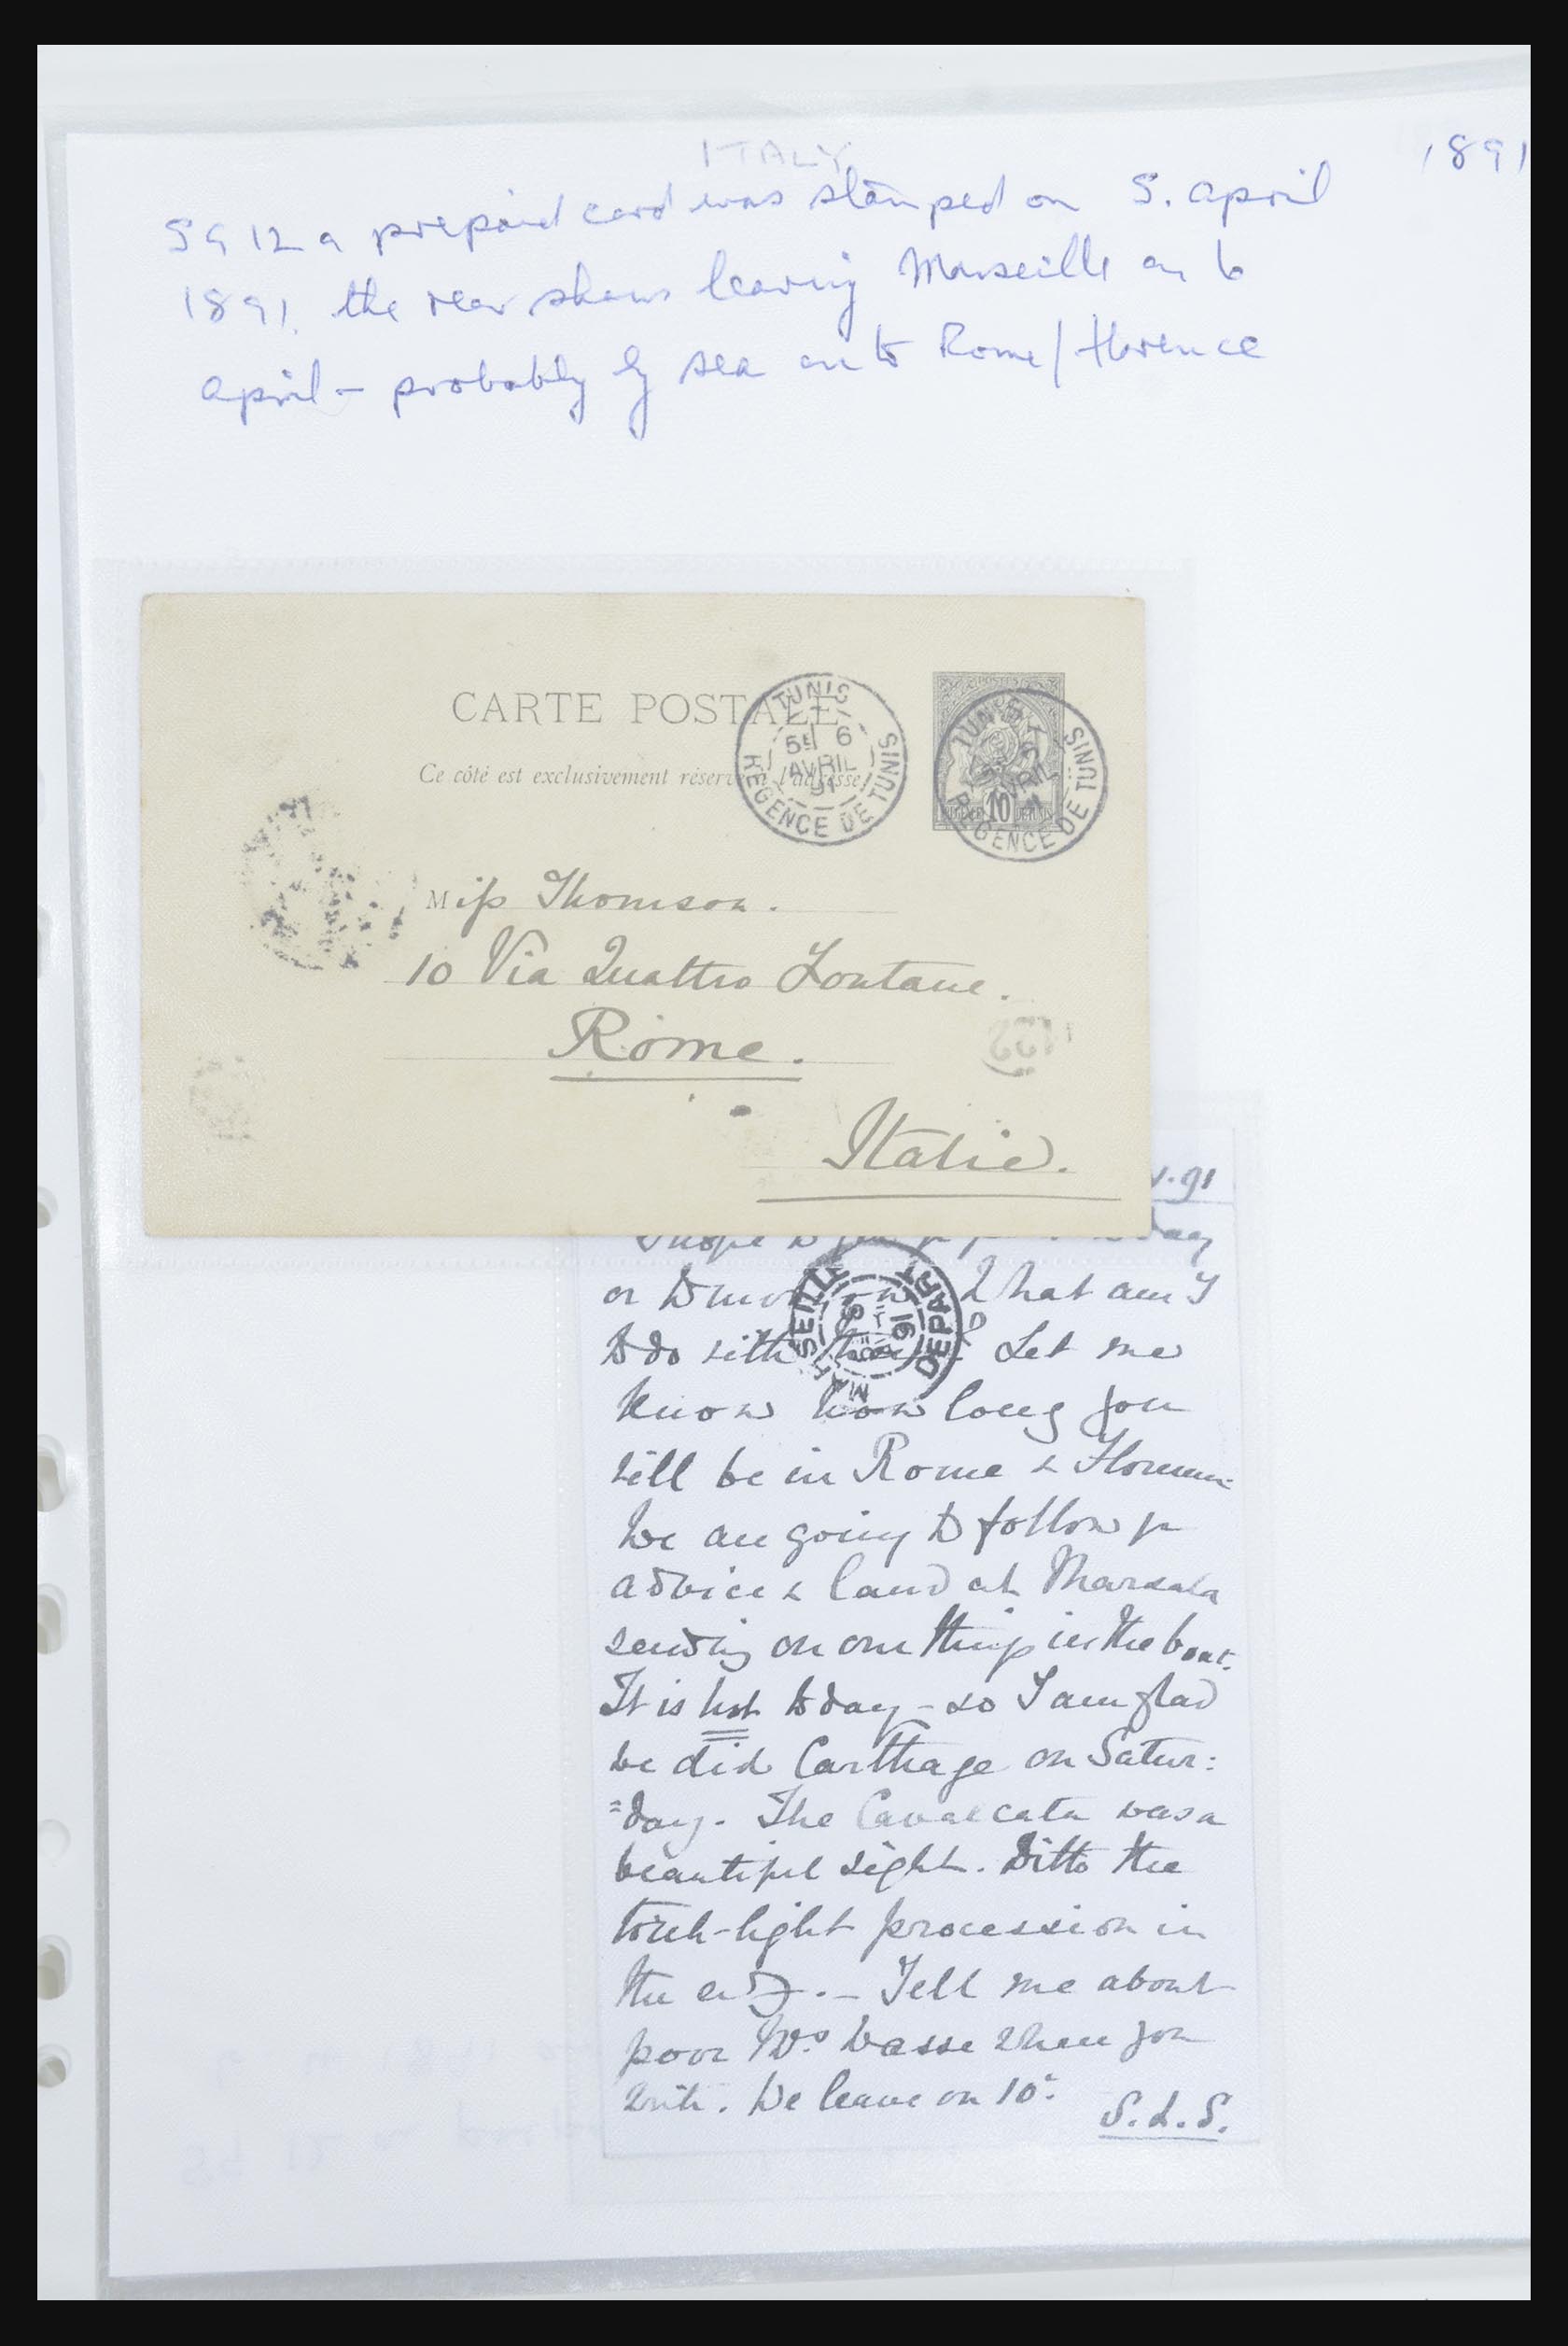 ITALY
1891
SG 12a prepaid card was stamped on 5. april
1891. the rear shows leaving Marseille on 6
april – probably by sea on to Rome/Florence
CARTE POSTALE
Ce côté est exclusivement réservé à l'adresse
TUNIS
5E 6
AVRIL
91
REGENCE DE TUNIS
TUNIS
AVRIL
REGENCE DE TUNIS
POSTES
10
Miss Thomson.
10 Via Quattro Fontane.
Rome.
122
Italie.
v. 91
I hope to day
or tomorrow What am I
to do with ? Let me
MARSEILLE
DEPART
91
know how long you
will be in Rome & Florence
We are going to follow yr
advice & land at Marsala
sending on our things in the boat.
It is hot today – so I am glad
we did Carthage on Satur:
=day. The Cavalcata was a
beautiful sight. Ditto the
torch-light procession in
the . – Tell me about
poor when you
write. We leave on 10:
S.L.S.